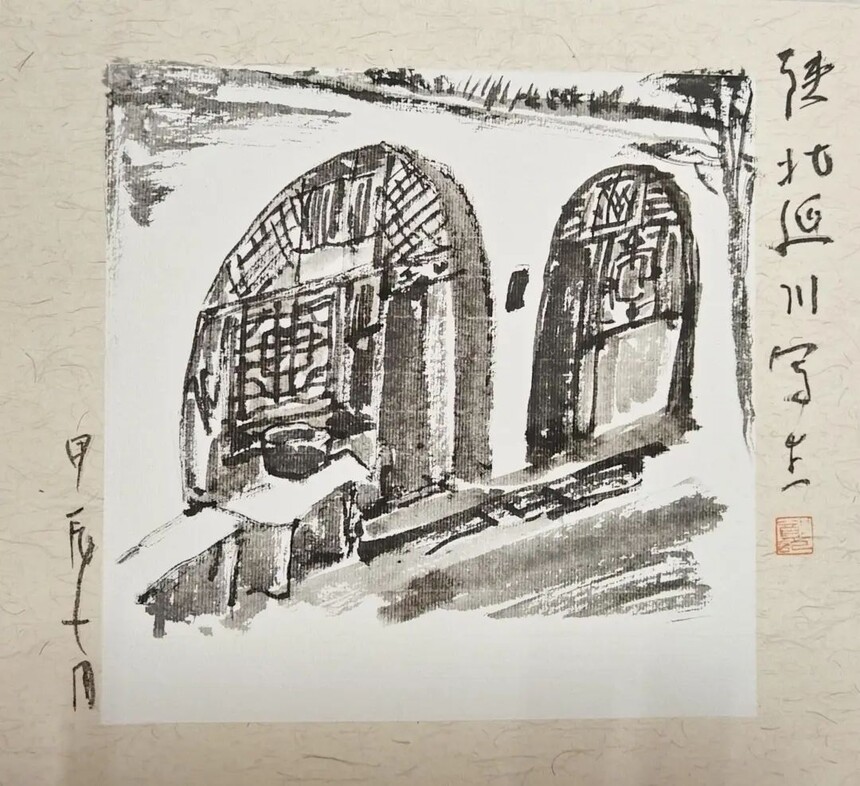 陕北延川写生
甲辰七月